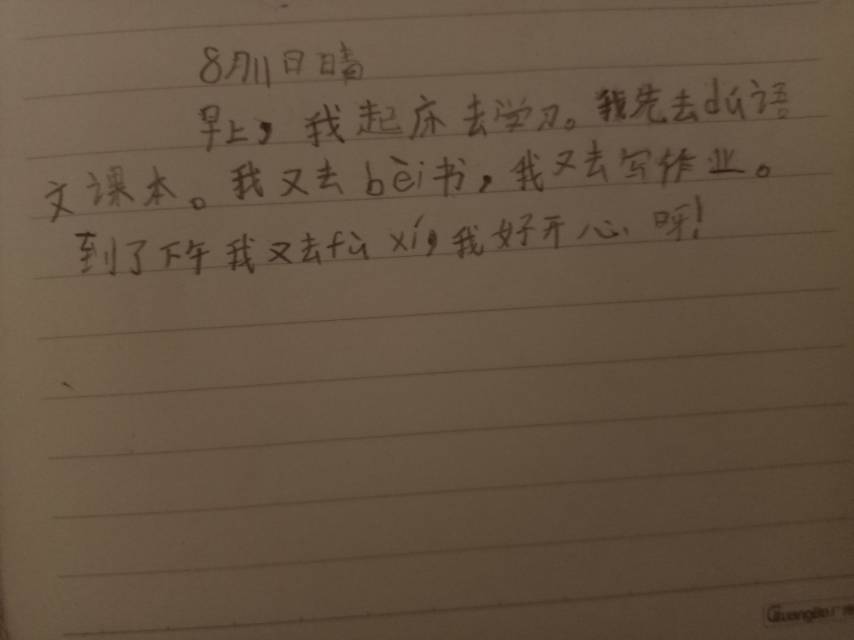 8月11日 晴
早上，我起床去学习。我先去dú语
文课本。我又去bèi书，我又去写作业。
到了下午我又去fù xí，我好开心呀！
Guangbo